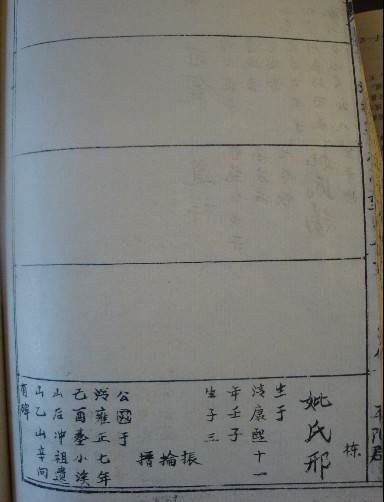 栋
妣氏邢
生于
清康熙十一
年壬子
生子三
振
掄
搢
公于
清雍正七年
己酉葬小溪
山后冲祖遗
山乙山辛向
有碑